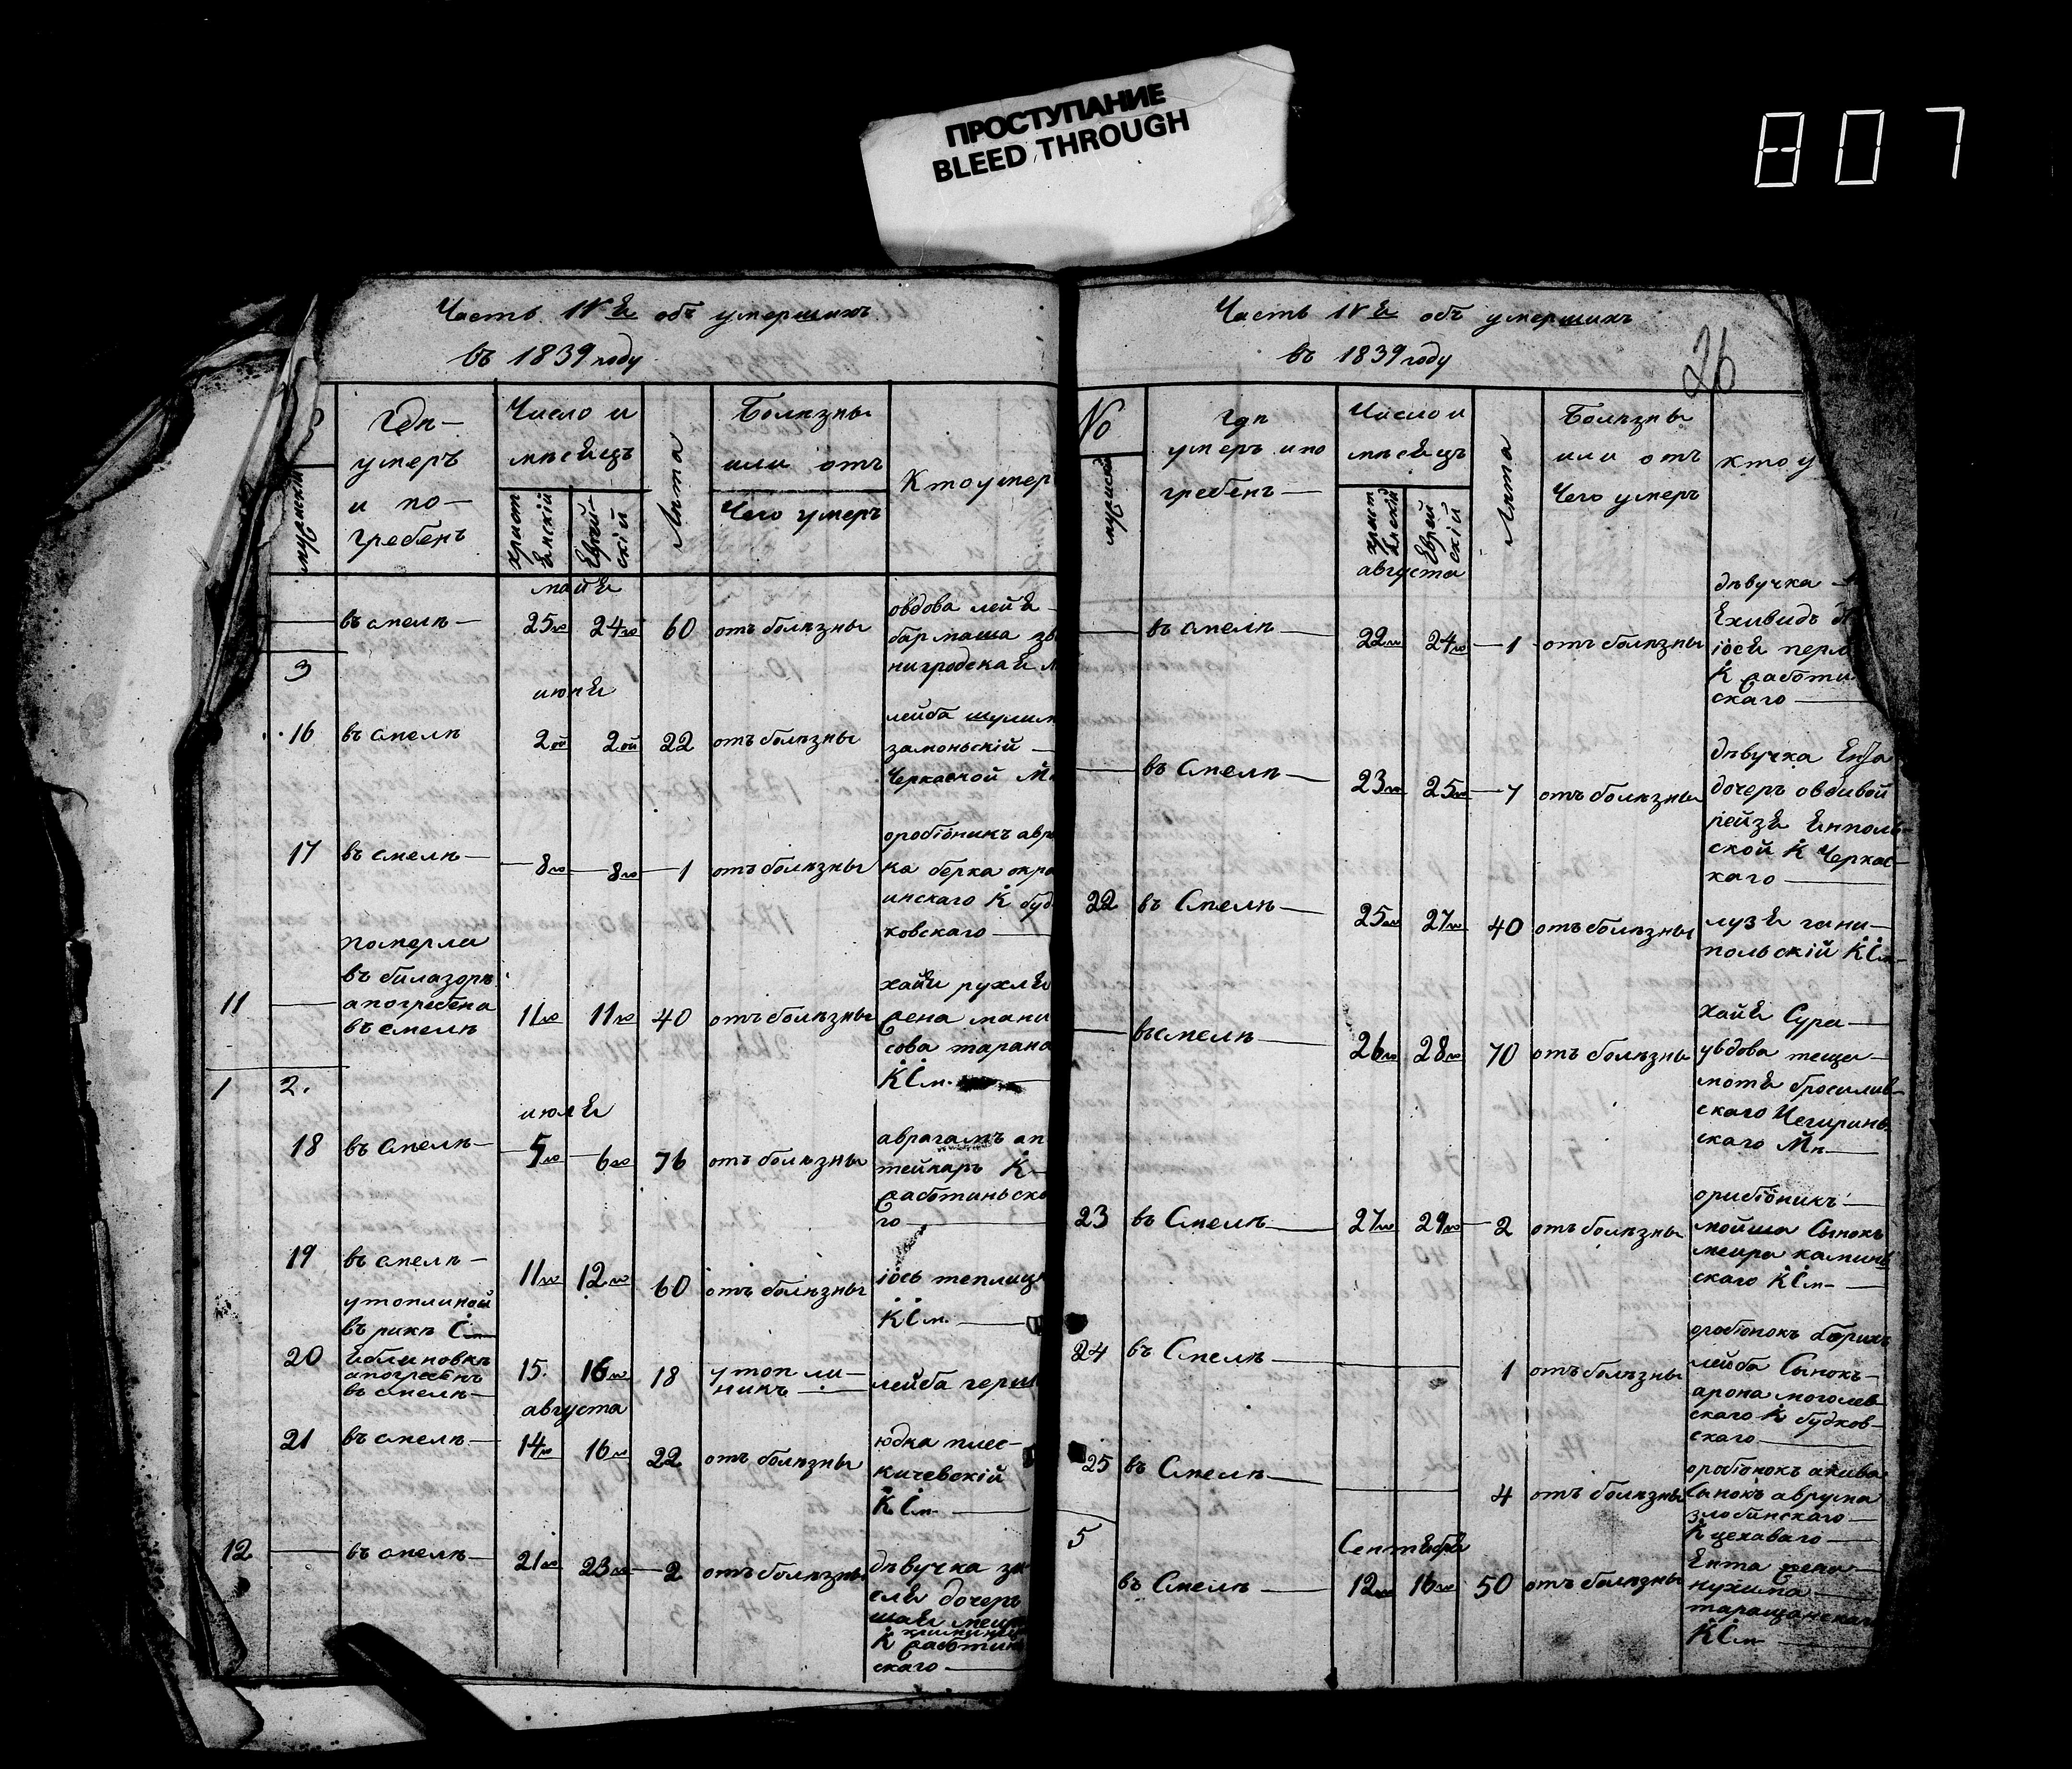 ПРОСТУПАНИЕ
BLEED THROUGH
807
Часть IVя объ умершихъ
въ 1839 году
Гдѣ
умеръ
и по-
гребенъ
Число и
мѣсяцъ
христ
янскій
Еврей-
скій
Лѣта
Болѣзнь
или отъ
Чего умеръ
Кто умер
мужскій
майя
въ смелѣ
25го
24го
60
отъ болѣзны
овдова лейя
бармаша зв
нигродская
3
июня
16
въ смелѣ
2ой
2ой
22
отъ болѣзны
лейба шулим
замоньскій
Черкасчой М
17
въ смелѣ
8го
8го
1
отъ болѣзны
оробіоникъ авр
ка берка окра
инскаго К буд
ковскаго
11
померла
въ билазорѣ
апогребена
въ смелѣ
11го
11го
40
отъ болѣзны
хайя рухля
жена мани
сова тарана
К См.
1
2.
июля
18
въ Смелѣ
5го
6го
76
отъ болѣзны
аврагамъ ап
тейкаръ К
работиньска
го
19
въ смелѣ
11го
12го
60
отъ болѣзны
іось теплиц
К См.
20
утоплиной
въ рикѣ См
Яблиновкѣ
апогребнъ
въ смелѣ
15.
16го
18
утопли-
никъ
лейба герш
августа
21
въ смелѣ
14го
16го
22
отъ болѣзны
юдка плес-
кичевскій
К См.
12
въ смелѣ
21го
23го
2
отъ болѣзны
дѣвучка
дочеръ
К работин
скаго
Часть IVя объ умершихъ
въ 1839 году
26
No
мужскій
Гдѣ
умеръ ипо
гребенъ
Число и
мѣсяцъ
христ
янскій
Еврей
скій
Лѣта
Болѣзнь
или отъ
Чего умеръ
кто у
августа
въ смелѣ
22го
24го
1
отъ болѣзны
дѣвучка
Ехивидъ
іося перл
К работи
скаго
въ Смелѣ
23го
25го
7
отъ болѣзны
дѣвучка Ента
дочеръ овдивой
рейзя янполь-
ской К Черкас-
каго
22
въ Смелѣ
25го
27го
40
отъ болѣзны
лузя гани-
польскій К См
въсмелѣ
26го
28го
70
отъ болѣзны
хайя Сура
увдова теща
мотя бросилив-
скаго Чегиринь
скаго Мѣ
23
въ Смелѣ
27го
29го
2
отъ болѣзны
орибіоникъ
мойша Сынокъ
меира каминь
скаго К См
24
въ Смелѣ
1
отъ болѣзны
оробіонокъ
лейба Сынокъ
арона моголев-
скаго К будков-
скаго
25
въ Смелѣ
4
отъ болѣзны
оробіонокъ акива
Сынокъ аврума
злотинскаго
К цехаваго
5
Сентября
въ Смелѣ
12го
16го
50
отъ болѣзны
Ента жена
нухима
таращанскаго
К См